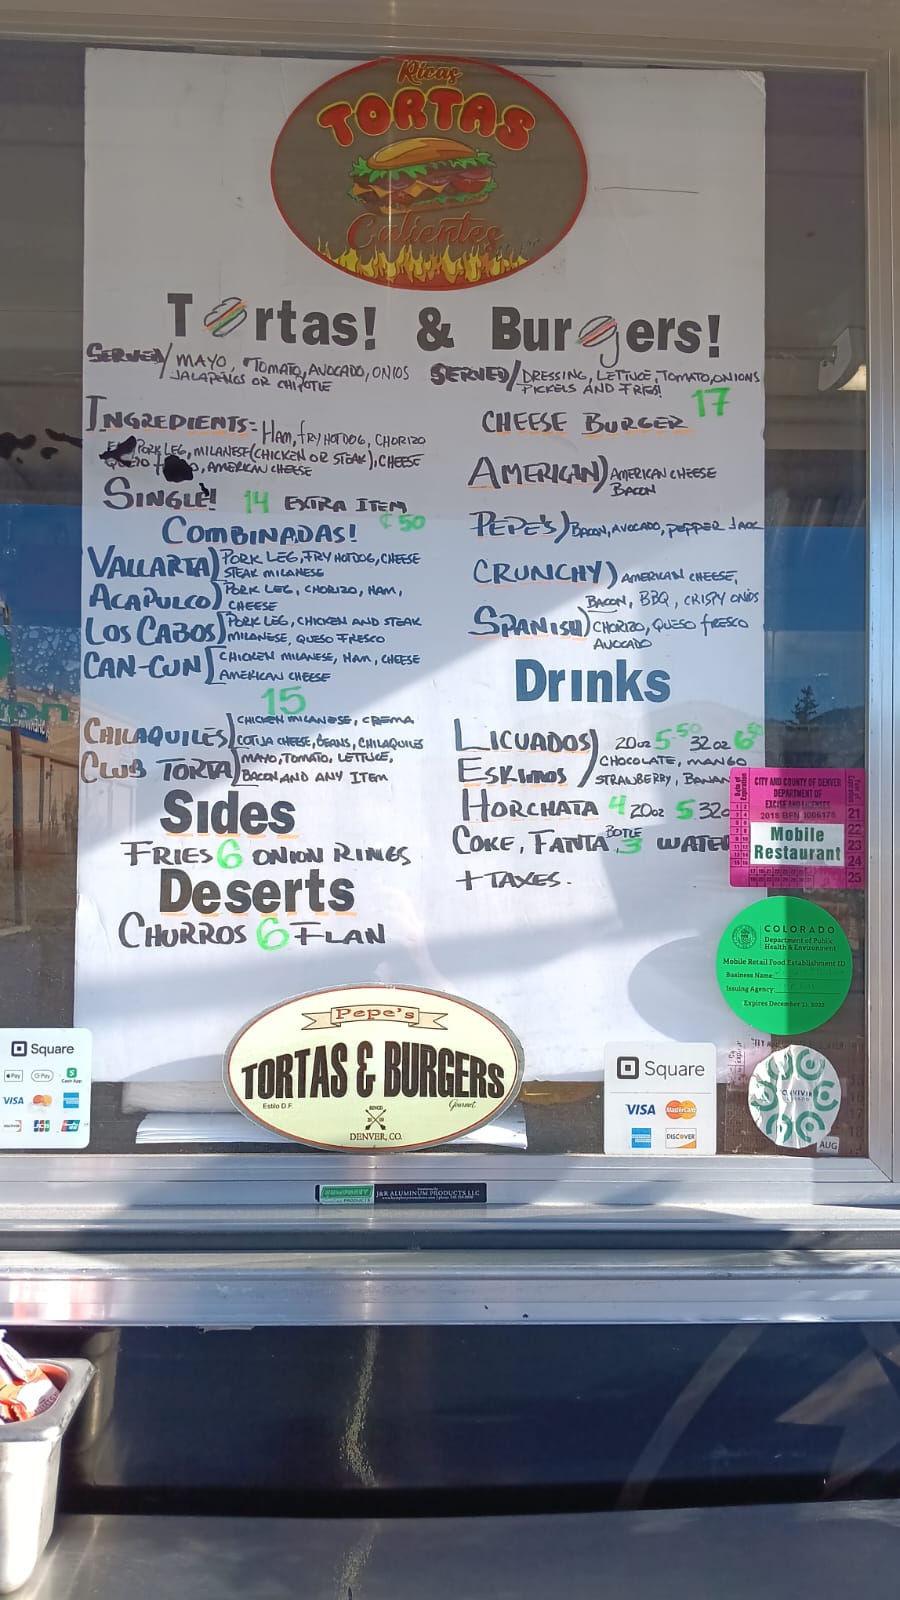 Ricas
TORTAS
Calientes
Tortas! & Burgers!
SERVED/ MAYO, TOMATO, AVOCADO, ONIOS
JALAPEÑOS OR CHIPOTLE
INGREDIENTS: HAM, FRY HOTDOG, CHORIZO
PORK LEG, MILANESE (CHICKEN OR STEAK), CHEESE
QUESO, AMERICAN CHEESE
SINGLE! 14 EXTRA ITEM
¢50
COMBINADAS!
VALLARTA) PORK LEG, FRY HOTDOG, CHEESE
STEAK MILANESE
ACAPULCO) PORK LEG, CHORIZO, HAM,
CHEESE
LOS CABOS) PORK LEG, CHICKEN AND STEAK
MILANESE, QUESO FRESCO
CAN-CUN [ CHICKEN MILANESE, HAM, CHEESE
AMERICAN CHEESE
15
CHILAQUILES) CHICKEN MILANESE, CREMA
COTIJA CHEESE, BEANS, CHILAQUILES
CLUB TORTA) MAYO, TOMATO, LETTUCE,
BACON AND ANY ITEM
Sides
FRIES 6 ONION RINGS
Deserts
CHURROS 6 FLAN
SERVED/ DRESSING, LETTUCE, TOMATO, ONIONS
PICKELS AND FRIES!
17
CHEESE BURGER
AMERICAN) AMERICAN CHEESE
BACON
PEPE'S) BACON, AVOCADO, PEPPER JACK
CRUNCHY) AMERICAN CHEESE,
BACON, BBQ, CRISPY ONIOS
SPANISH) CHORIZO, QUESO FRESCO
AVOCADO
Drinks
LICUADOS) 20oz 5.50 32oz 6.50
CHOCOLATE, MANGO
ESKIMOS STRAWBERRY, BANAN
HORCHATA 4 20oz 5 32o
COKE, FANTA BOTLE 3 WATER
+TAXES.
CITY AND COUNTY OF DENVER
DEPARTMENT OF
EXCISE AND LICENSES
2018 BFN
Mobile
Restaurant
21
22
23
24
25
COLORADO
Department of Public
Health & Environment
Mobile Retail Food Establishment ID
Business Name:
Issuing Agency:
Expires December 31, 2022
AUG
Square
Pay
G Pay
Cash App
VISA
JCB
Pepe's
TORTAS & BURGERS
Estilo D.F.
Gourmet
DENVER, CO.
Square
VISA MasterCard
DISCOVER
J&R ALUMINUM PRODUCTS LLC